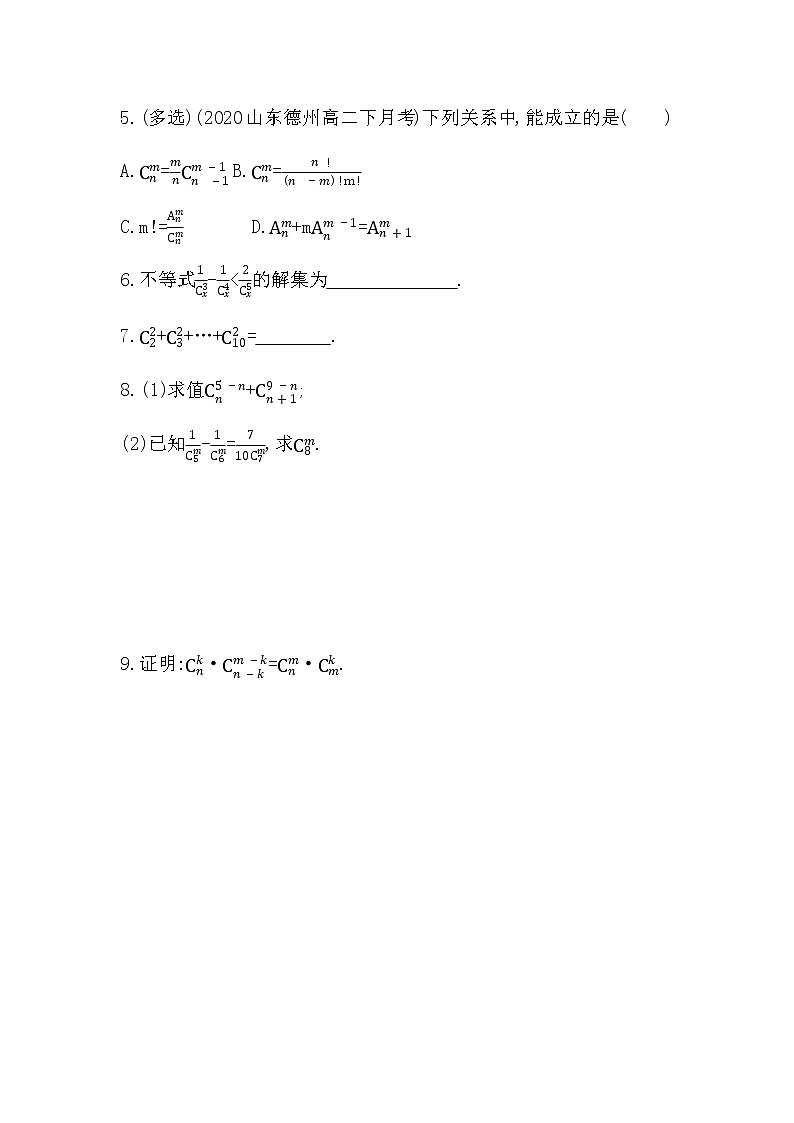 5.(多选)(2020山东德州高二下月考)下列关系中,能成立的是(  )
A.$C_n^m=\frac{m}{n}C_{n-1}^{m-1}$ B.$C_n^m=\frac{n!}{(n-m)!m!}$
C.$m!=\frac{A_n^m}{C_n^m}$ D.$A_n^m+mA_n^{m-1}=A_{n+1}^m$
6.不等式$\frac{1}{C_x^3}-\frac{1}{C_x^4}<\frac{2}{C_x^5}$的解集为______________.
7.$C_2^2+C_3^2+…+C_{10}^2=$________.
8.(1)求值$C_n^{5-n}+C_{n+1}^{9-n}$;
(2)已知$\frac{1}{C_5^m}-\frac{1}{C_6^m}=\frac{7}{10C_7^m}$,求$C_8^m$.
9.证明:$C_n^k·C_{n-k}^{m-k}=C_n^m·C_m^k$.